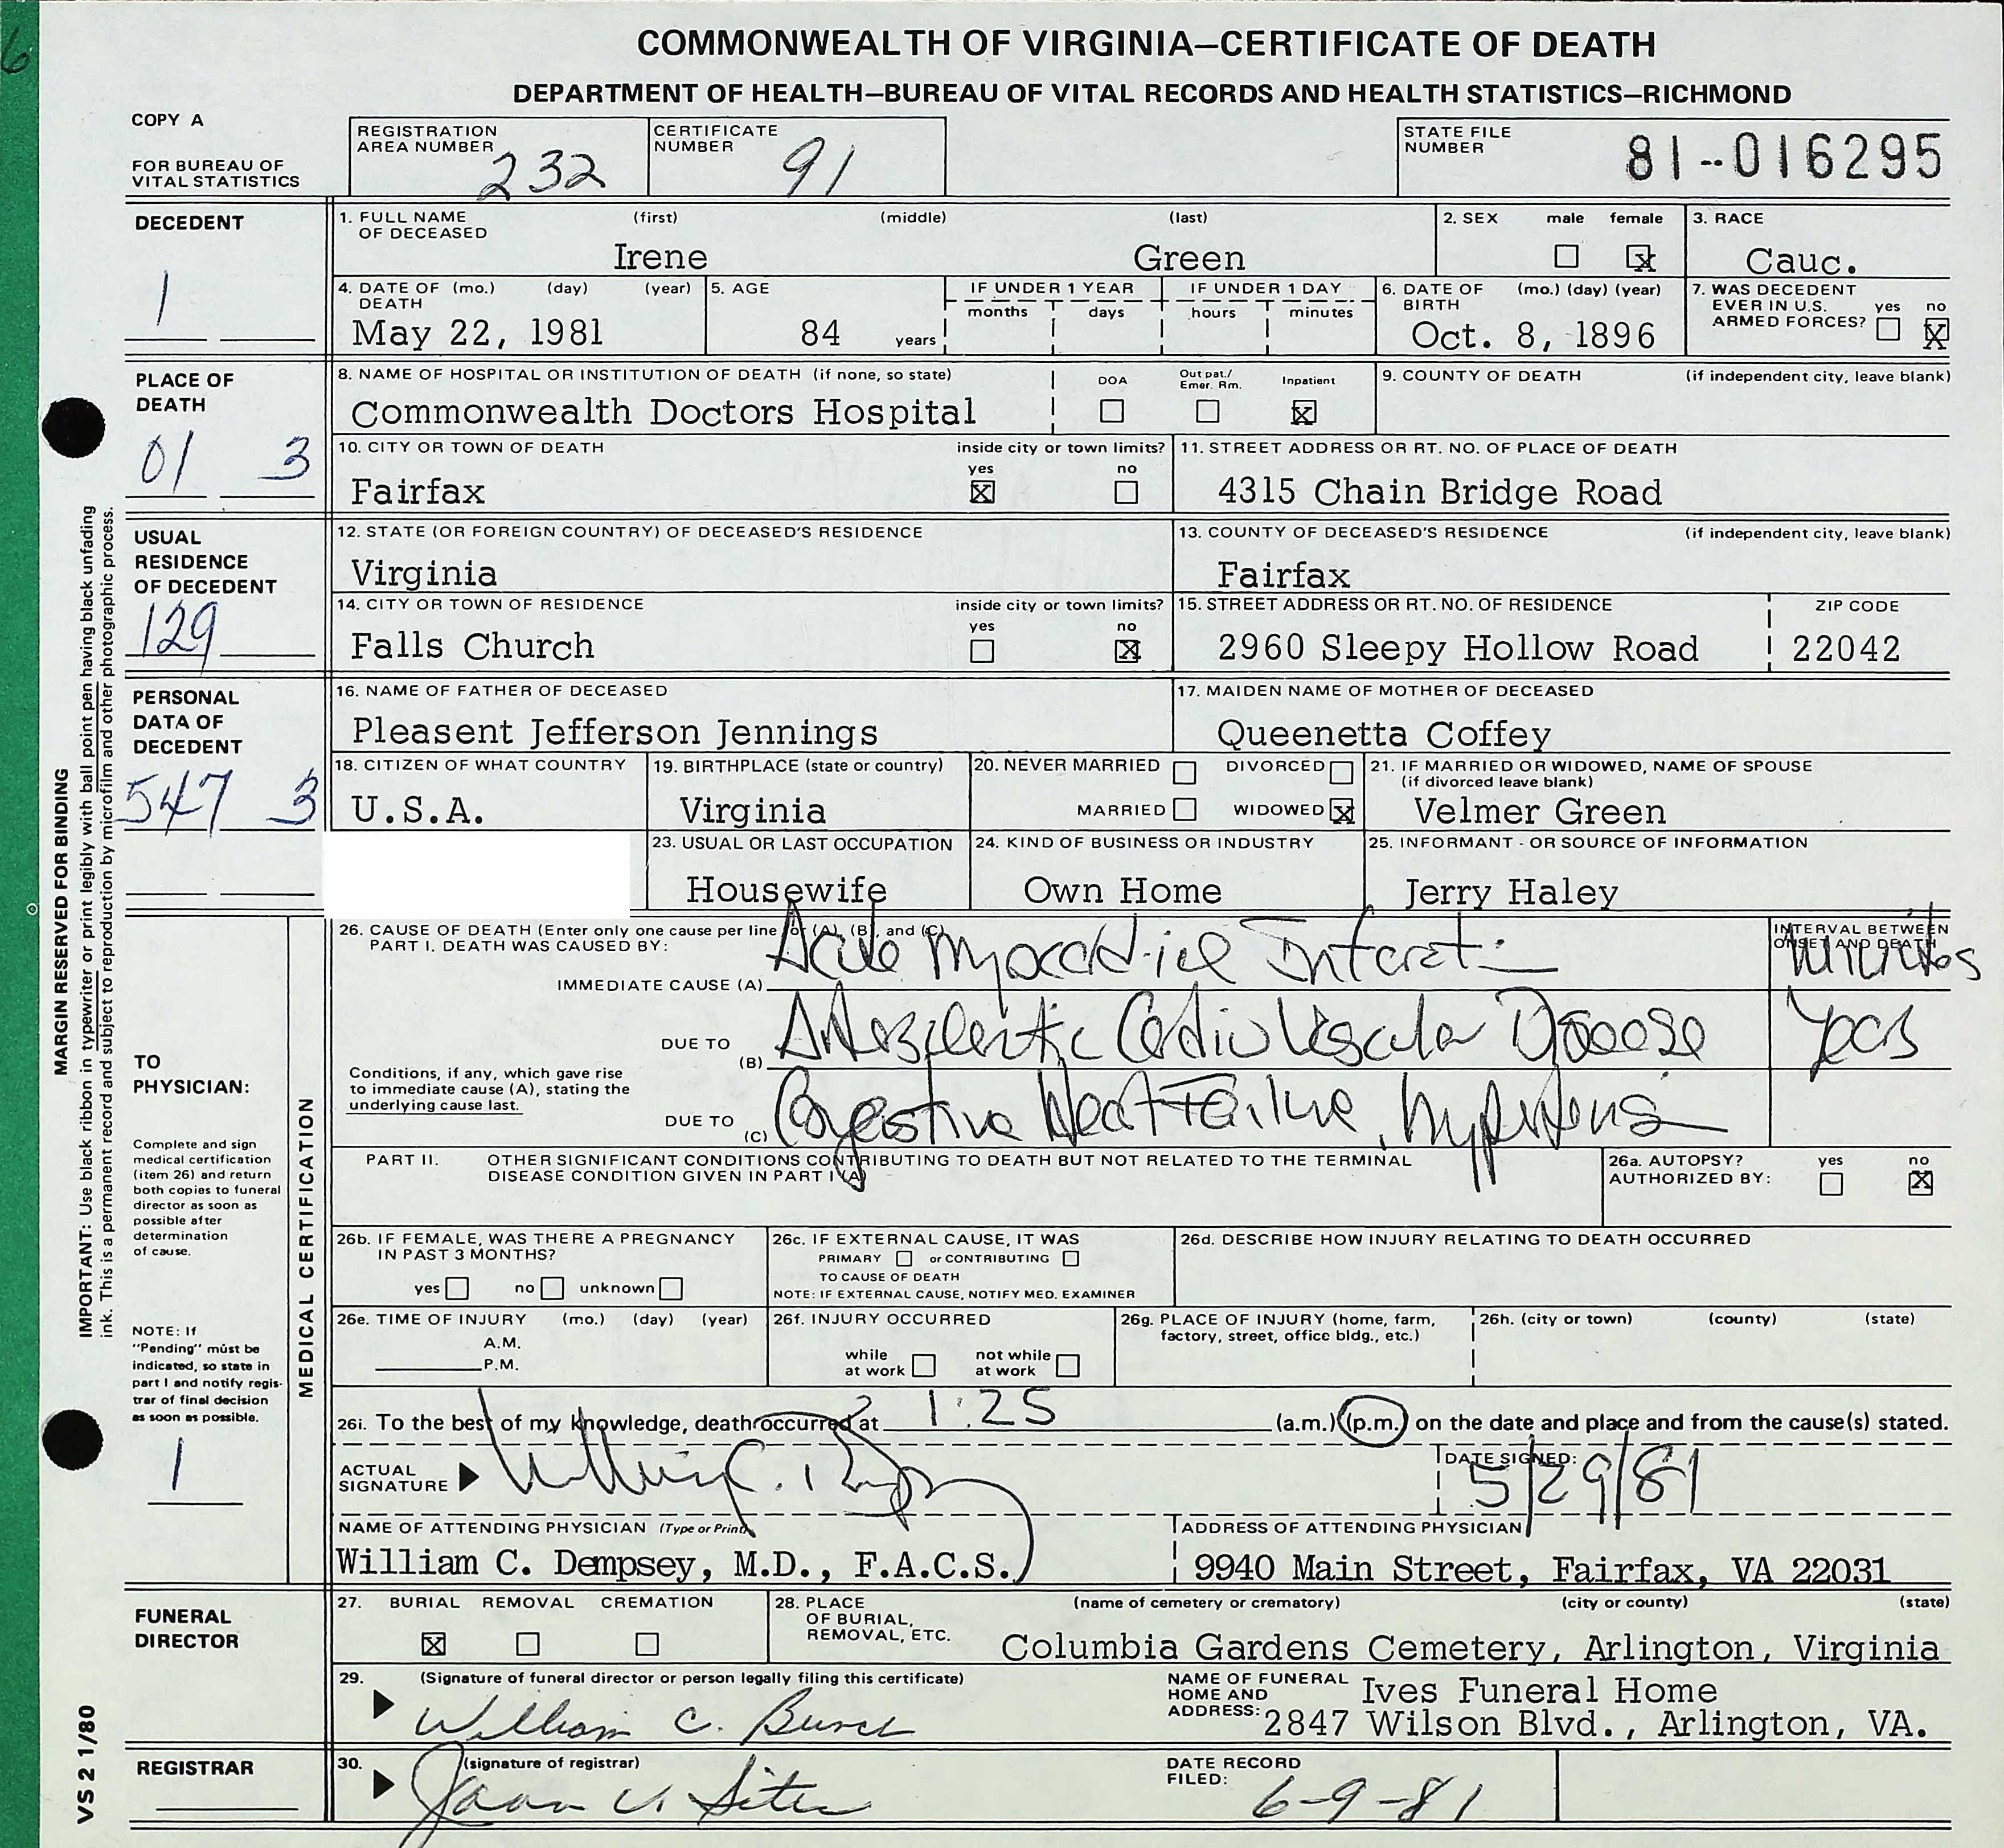 COMMONWEALTH OF VIRGINIA—CERTIFICATE OF DEATH
DEPARTMENT OF HEALTH—BUREAU OF VITAL RECORDS AND HEALTH STATISTICS—RICHMOND
COPY A
FOR BUREAU OF VITAL STATISTICS
REGISTRATION AREA NUMBER 232
CERTIFICATE NUMBER 91
STATE FILE NUMBER 81--016295
DECEDENT
1
1. FULL NAME OF DECEASED (first) (middle) (last)
Irene Green
2. SEX male female x
3. RACE Cauc.
4. DATE OF DEATH (mo.) (day) (year)
May 22, 1981
5. AGE 84 years
IF UNDER 1 YEAR months days
IF UNDER 1 DAY hours minutes
6. DATE OF BIRTH (mo.) (day) (year)
Oct. 8, 1896
7. WAS DECEDENT EVER IN U.S. ARMED FORCES? yes no X
PLACE OF DEATH
01 3
8. NAME OF HOSPITAL OR INSTITUTION OF DEATH (if none, so state)
Commonwealth Doctors Hospital
DOA Out pat./ Emer. Rm. Inpatient x
9. COUNTY OF DEATH (if independent city, leave blank)
10. CITY OR TOWN OF DEATH inside city or town limits? yes x no
Fairfax
11. STREET ADDRESS OR RT. NO. OF PLACE OF DEATH
4315 Chain Bridge Road
USUAL RESIDENCE OF DECEDENT
129
12. STATE (OR FOREIGN COUNTRY) OF DECEASED'S RESIDENCE
Virginia
13. COUNTY OF DECEASED'S RESIDENCE (if independent city, leave blank)
Fairfax
14. CITY OR TOWN OF RESIDENCE inside city or town limits? yes no x
Falls Church
15. STREET ADDRESS OR RT. NO. OF RESIDENCE ZIP CODE
2960 Sleepy Hollow Road 22042
PERSONAL DATA OF DECEDENT
547 3
16. NAME OF FATHER OF DECEASED
Pleasent Jefferson Jennings
17. MAIDEN NAME OF MOTHER OF DECEASED
Queenetta Coffey
18. CITIZEN OF WHAT COUNTRY
U.S.A.
19. BIRTHPLACE (state or country)
Virginia
20. NEVER MARRIED DIVORCED
MARRIED WIDOWED x
21. IF MARRIED OR WIDOWED, NAME OF SPOUSE (if divorced leave blank)
Velmer Green
23. USUAL OR LAST OCCUPATION
Housewife
24. KIND OF BUSINESS OR INDUSTRY
Own Home
25. INFORMANT - OR SOURCE OF INFORMATION
Jerry Haley
MARGIN RESERVED FOR BINDING
IMPORTANT: Use black ribbon in typewriter or print legibly with ball point pen having black unfading
ink. This is a permanent record and subject to reproduction by microfilm and other photographic process.
VS 2 1/80
TO PHYSICIAN:
Complete and sign medical certification (item 26) and return both copies to funeral director as soon as possible after determination of cause.
NOTE: If "Pending" must be indicated, so state in part I and notify registrar of final decision as soon as possible.
1
MEDICAL CERTIFICATION
26. CAUSE OF DEATH (Enter only one cause per line for (A), (B), and (C)
PART I. DEATH WAS CAUSED BY:
INTERVAL BETWEEN ONSET AND DEATH
IMMEDIATE CAUSE (A) Acute Myocardial Infarction Minutes
DUE TO (B) Arteriosclerotic Cardiovascular Disease Years
Conditions, if any, which gave rise to immediate cause (A), stating the underlying cause last.
DUE TO (C) Congestive Heart Failure, hypertension
PART II. OTHER SIGNIFICANT CONDITIONS CONTRIBUTING TO DEATH BUT NOT RELATED TO THE TERMINAL DISEASE CONDITION GIVEN IN PART I (A)
26a. AUTOPSY? AUTHORIZED BY: yes no X
26b. IF FEMALE, WAS THERE A PREGNANCY IN PAST 3 MONTHS?
yes no unknown
26c. IF EXTERNAL CAUSE, IT WAS
PRIMARY or CONTRIBUTING
TO CAUSE OF DEATH
NOTE: IF EXTERNAL CAUSE, NOTIFY MED. EXAMINER
26d. DESCRIBE HOW INJURY RELATING TO DEATH OCCURRED
26e. TIME OF INJURY (mo.) (day) (year)
A.M.
P.M.
26f. INJURY OCCURRED
while at work not while at work
26g. PLACE OF INJURY (home, farm, factory, street, office bldg., etc.)
26h. (city or town) (county) (state)
26i. To the best of my knowledge, death occurred at 1:25 (a.m.) (p.m.) on the date and place and from the cause(s) stated.
ACTUAL SIGNATURE William C. Dempsey
DATE SIGNED: 5/29/81
NAME OF ATTENDING PHYSICIAN (Type or Print)
William C. Dempsey, M.D., F.A.C.S.
ADDRESS OF ATTENDING PHYSICIAN
9940 Main Street, Fairfax, VA 22031
FUNERAL DIRECTOR
27. BURIAL x REMOVAL CREMATION
28. PLACE OF BURIAL, REMOVAL, ETC. (name of cemetery or crematory) (city or county) (state)
Columbia Gardens Cemetery, Arlington, Virginia
29. (Signature of funeral director or person legally filing this certificate)
William C. Bunch
NAME OF FUNERAL HOME AND ADDRESS: Ives Funeral Home
2847 Wilson Blvd., Arlington, VA.
REGISTRAR
30. (signature of registrar)
DATE RECORD FILED: 6-9-81